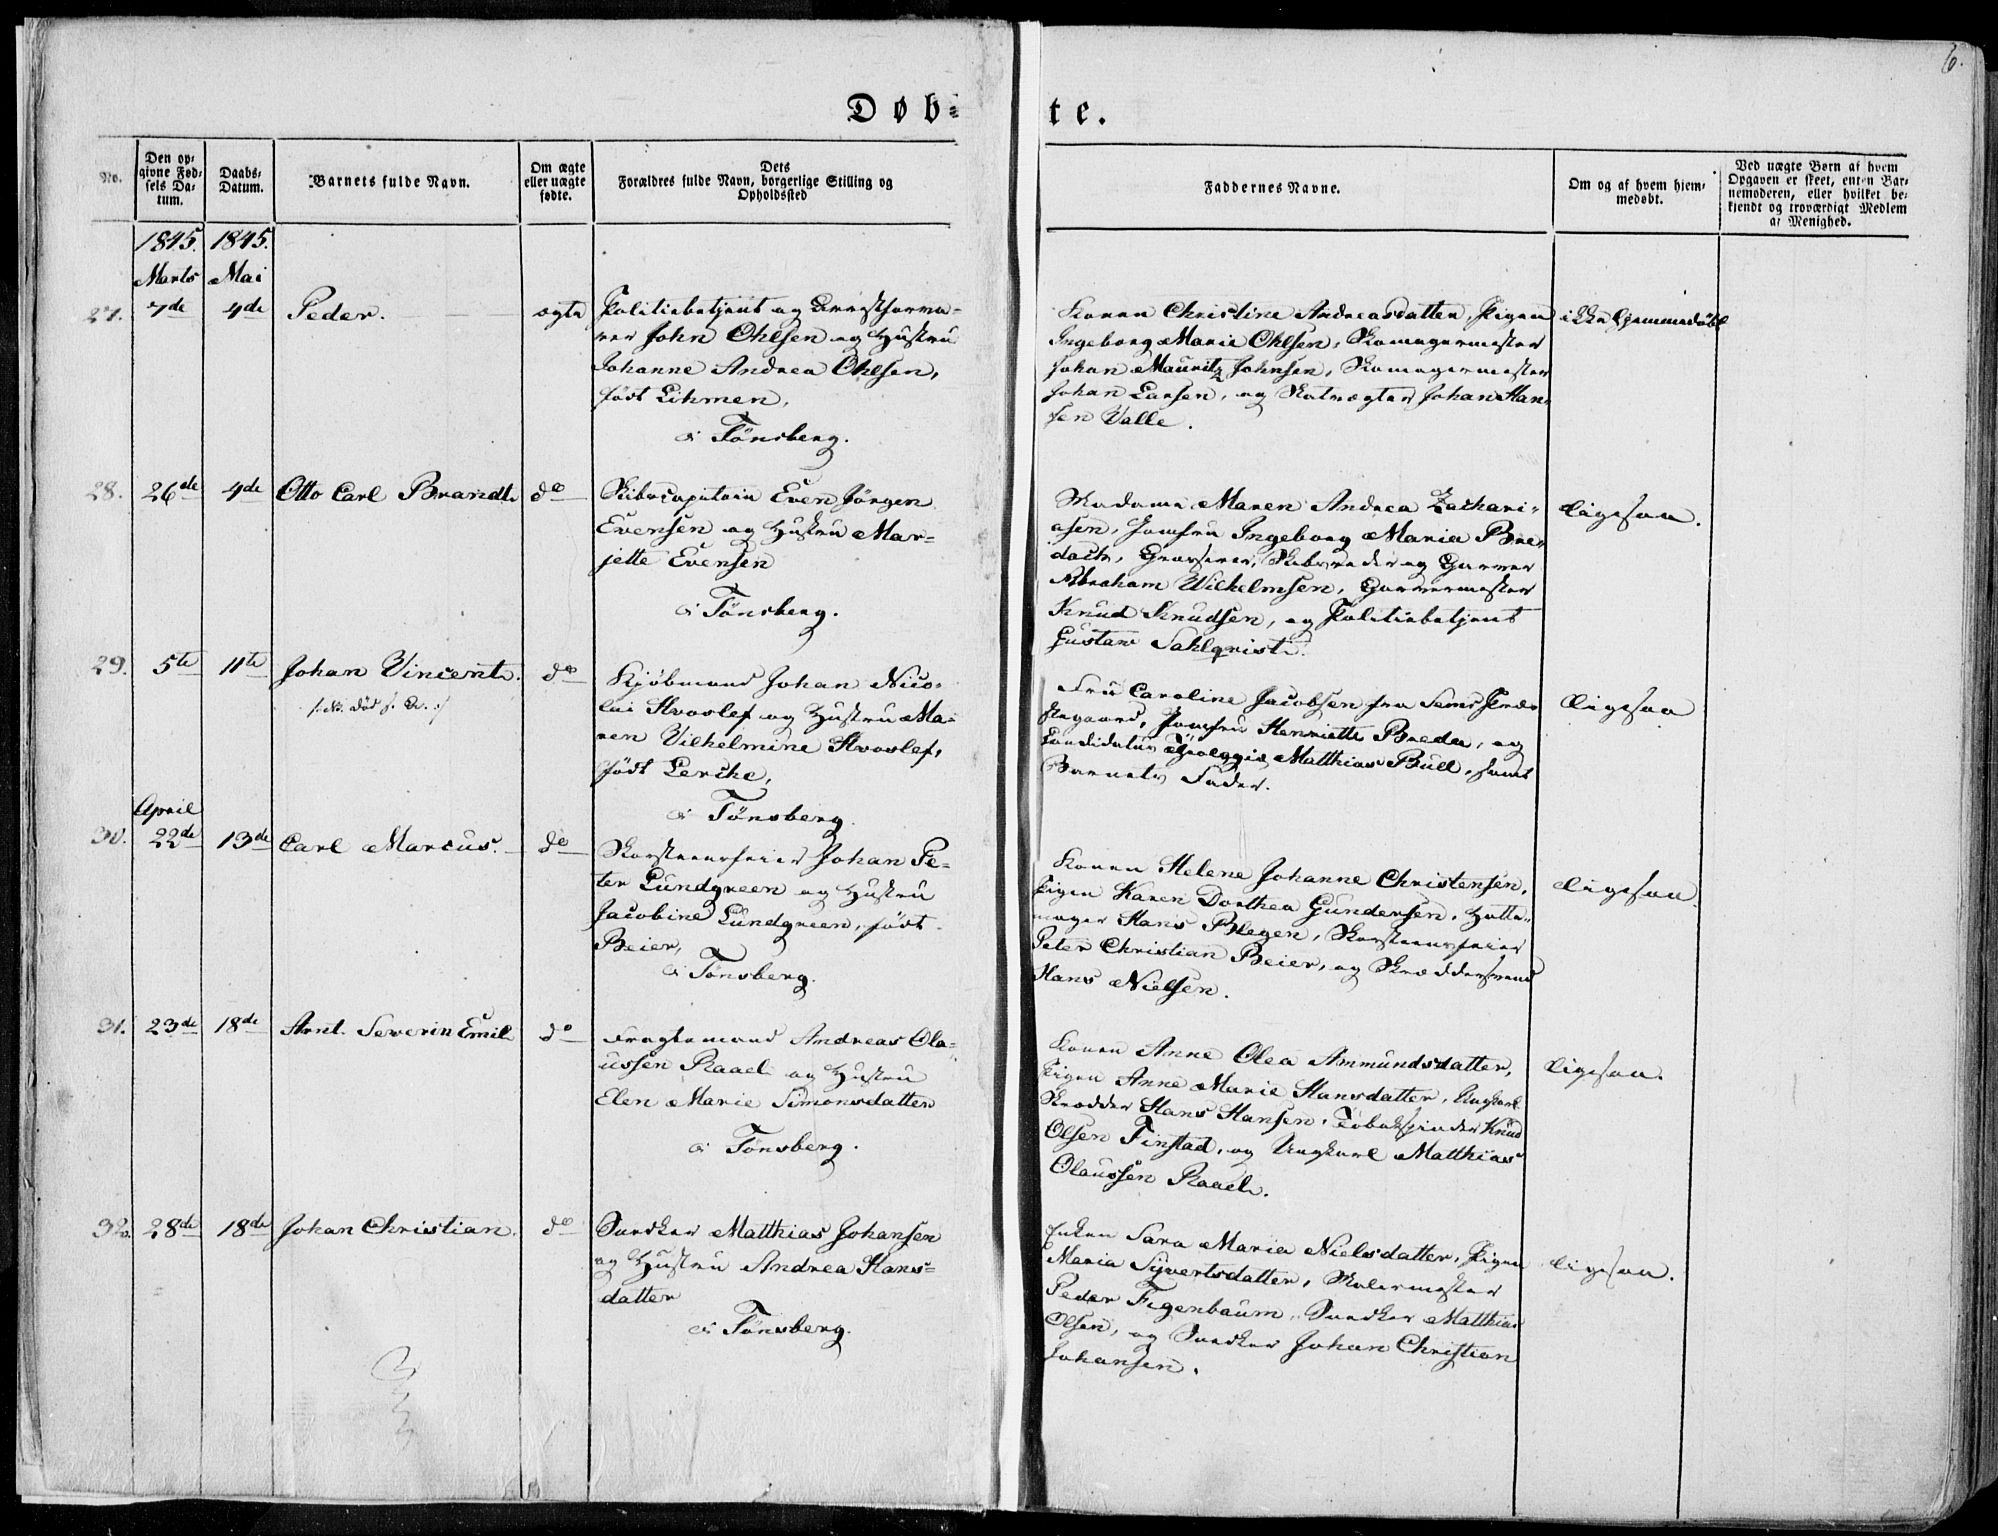 6.
Døb-
te.
No.
Den op-
givne Fød-
sels Da-
tum.
Daabs-
Datum.
Barnets fulde Navn.
Om ægte
eller uægte
fødte.
Dets
Forældres fulde Navn, borgerlige Stilling og
Opholdssted
Faddernes Navne.
Om og af hvem hjem-
medøbt.
Ved uægte Børn af hvem
Opgaven er skeet, enten Bar-
nemoderen, eller hvilket be-
kjendt og troværdigt Medlem
af Menighed.
1845. 1845.
Marts Mai
27. 7de 4de Peder. ægte
Politiebetjent og Arrestforva-
rer John Ohlsen og Hustru
Johanne Andrea Ohlsen,
født Lihmen,
i Tönsberg.
Konen Christine Andreasdatter, Pigen
Ingeborg Marie Ohlsen, Skomagermester
Johan Mauritz Johnsen, Skomagermester
Johan Larsen, og Natvægter Johan Han-
sen Valle.
ikke hjemmedöbt
28. 26de 4de Otto Carl Brandt. do
Skibscapitain Even Jörgen
Evensen og Hustru Mar-
jette Evensen
i Tönsberg.
Madame Maren Andrea Zachari-
asen, Jomfru Ingeborg Maria Bre-
dach, Grosserer, Skibsreder og Garver
Abraham Wilhelmsen, Garvermester
Knud Knudsen, og Politiebetjent
Gustav Sahlqvist.
ligesaa.
29. 5te 11te Johan Vincent. do
Kjöbmand Johan Nico-
lai Hvoslef og Hustru Ma-
ren Vilhelmine Hvoslef,
født Lerche,
i Tönsberg
Fru Caroline Jacobsen fra Sems Præ-
stegaard, Jomfru Henriette Breda, og
Candidatus Theologiæ Matthias Bull, samt
Barnets Fader.
ligesaa
April
30. 22de 13de Carl Marcus. do
Skorsteensfeier Johan Pe-
ter Lundgreen og Hustru
Jacobine Lundgreen, født
Beier,
i Tönsberg.
Konen Helene Johanne Christensen,
Pigen Karen Dorthea Gundersen, Hatte-
mager Hans Blegen, Skorsteensfeier
Peter Christian Beier, og Skræddersvend
Hans Nielsen.
ligesaa.
31. 23de 18de Arnt Severin Emil do
Fragtemand Andreas Ola-
ussen Raael og Hustru
Elen Marie Simonsdatter
i Tönsberg.
Konen Anne Olea Ammundsdatter,
Pigen Anne Marie Hansdatter, Ungkarl
Skrædder Hans Hansen, Tobakspinder Knud
Olsen Finstad, og Ungkarl Matthias
Olaussen Raael.
ligesaa.
32. 28de 18de Johan Christian. do
Snedker Matthias Johansen
og Hustru Andrea Hans-
datter
i Tönsberg.
Enken Sara Maria Nielsdatter, Pigen
Maria Syvertsdatter, Malermester
Peder Figenbaum, Snedker Matthias
Olsen, og Snedker Johan Christian
Johansen.
ligesaa.